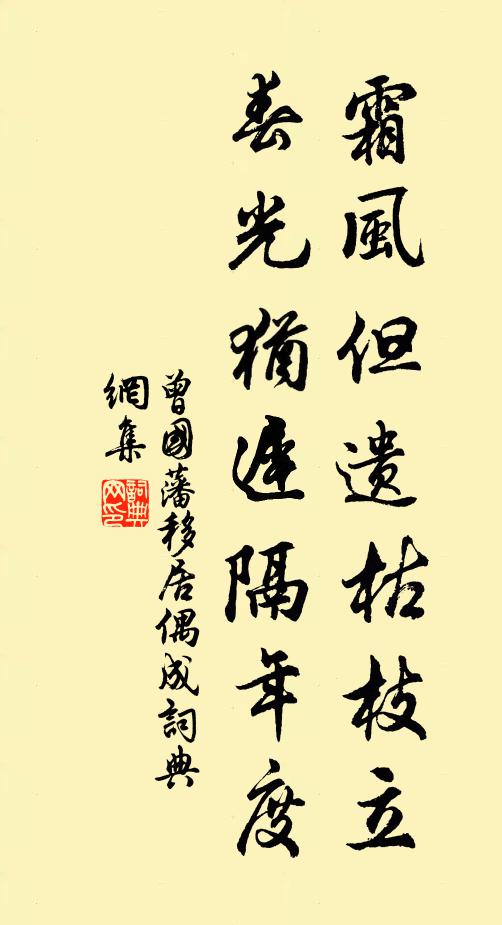 霜風但遺枯枝立
春光猶遲隔年度
曾國藩移居偶成詞典
網集
詞典網印